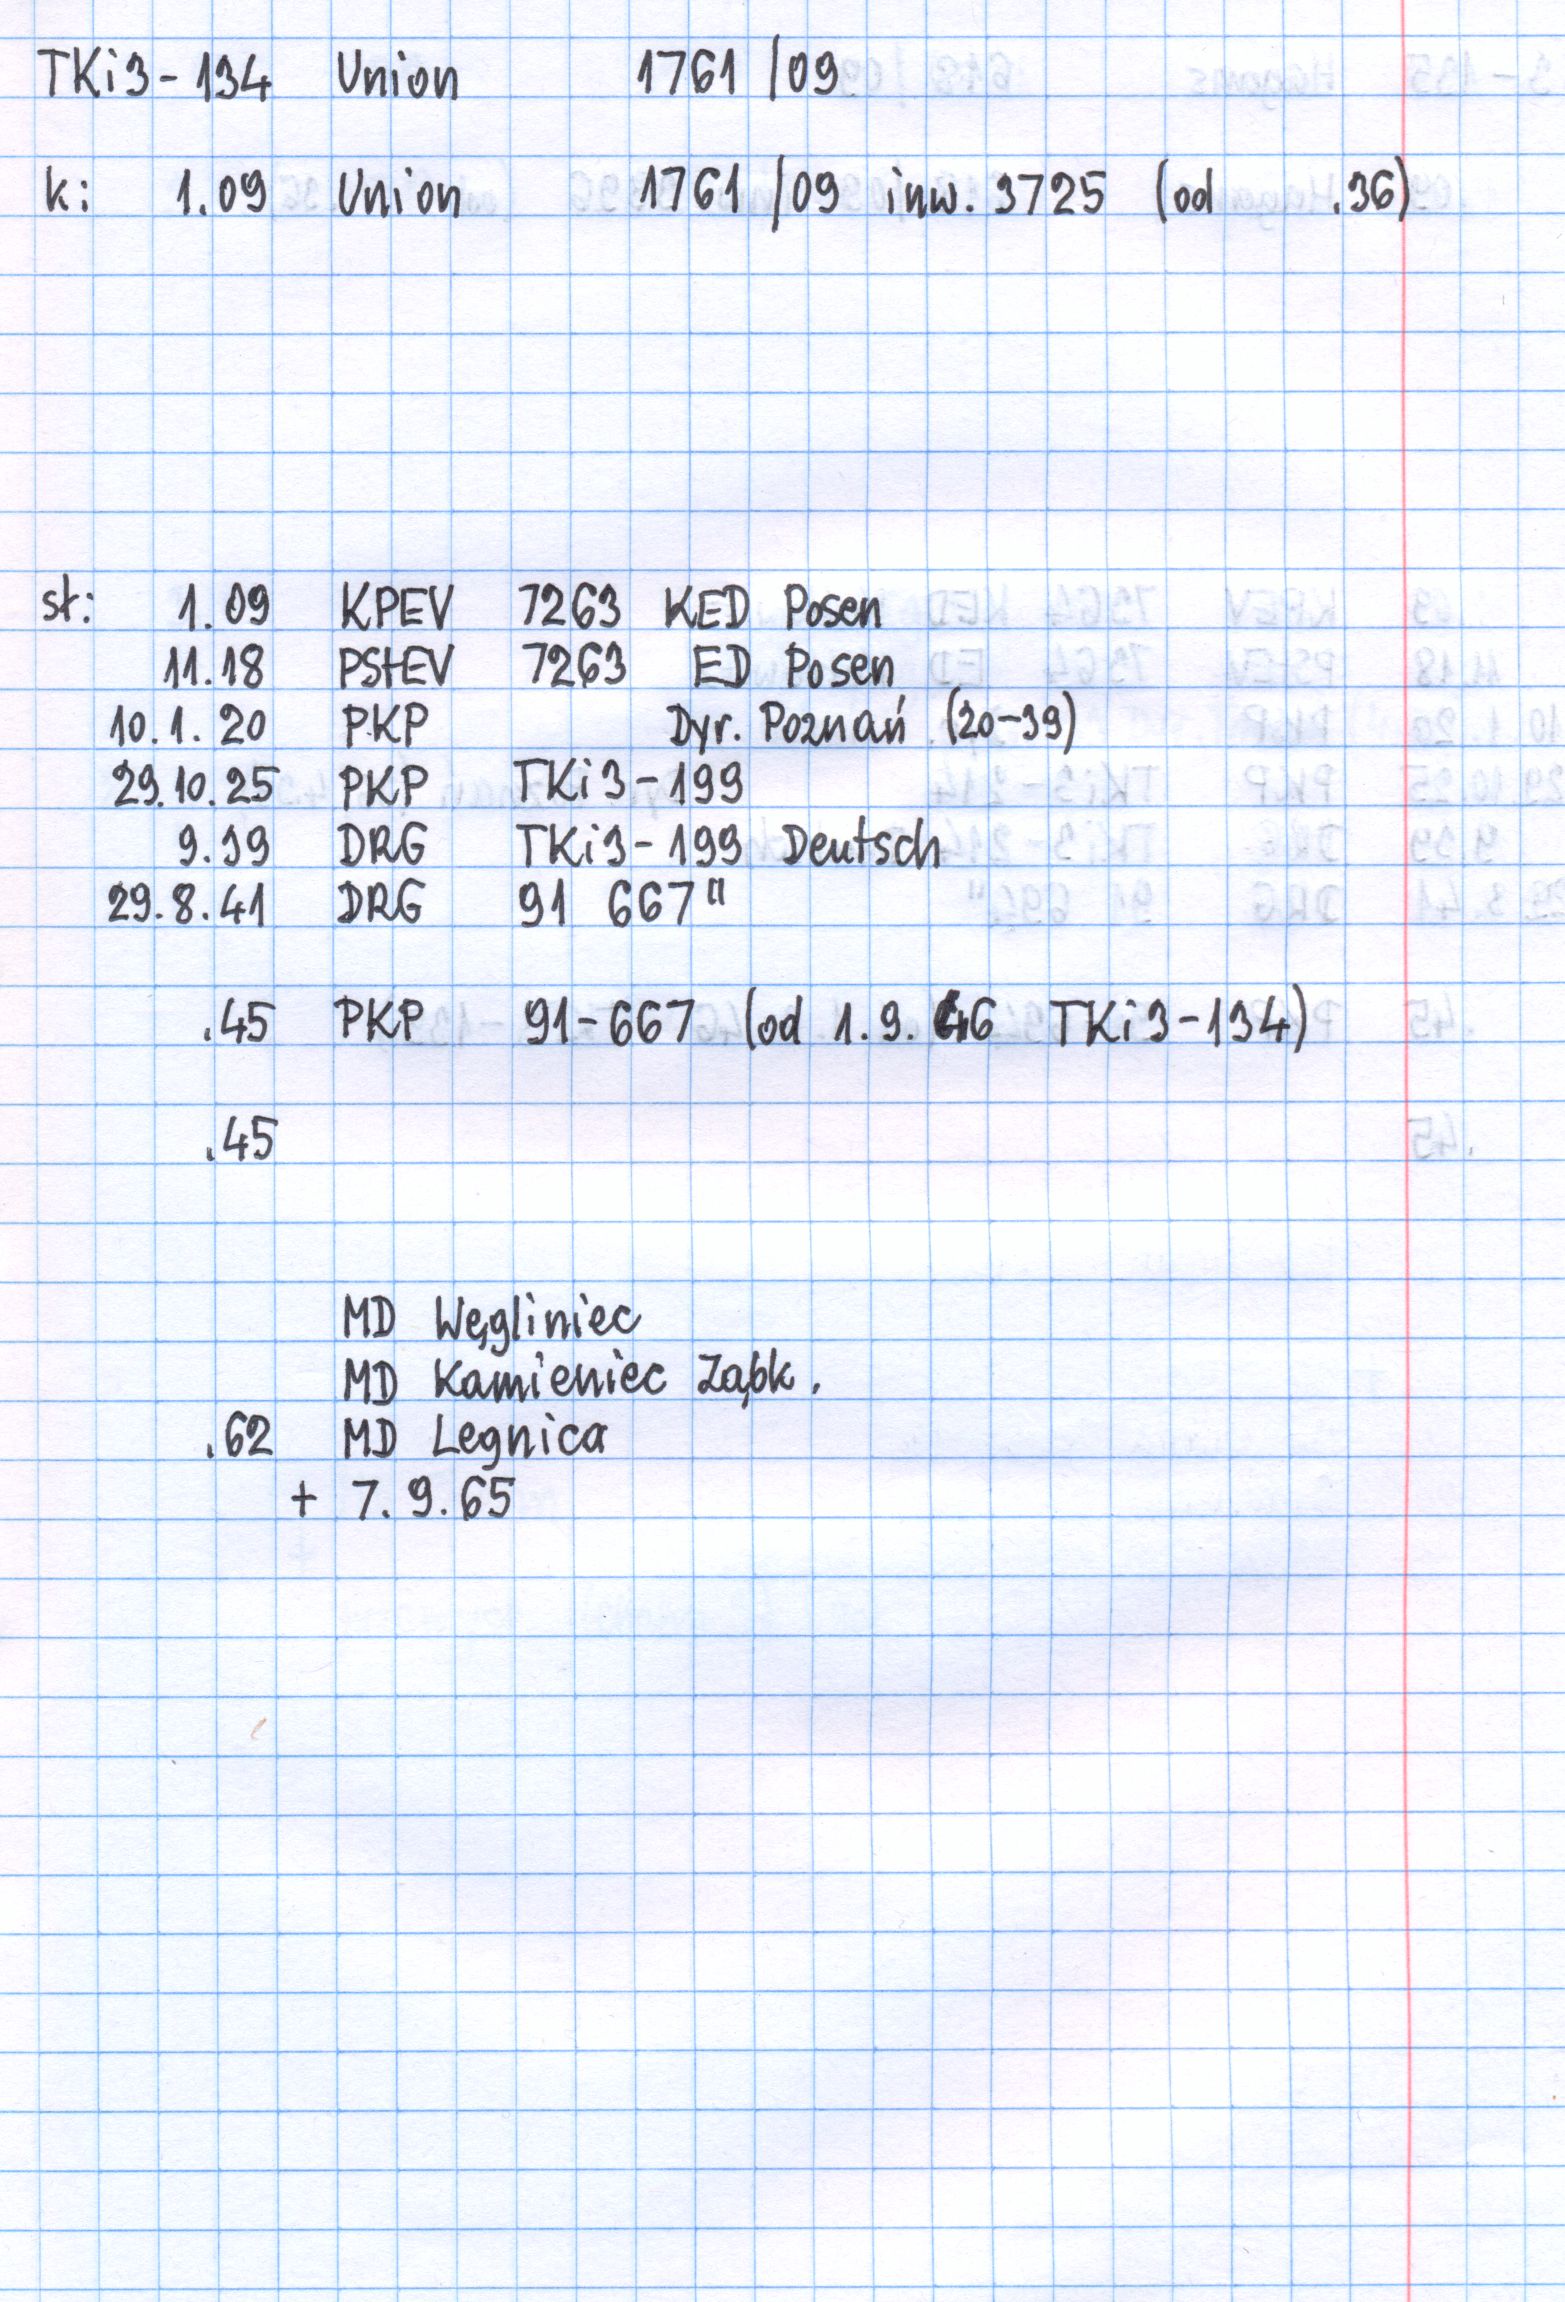 TKi3-134 Union 1761/09
k: 1.09 Union 1761/09 inw. 3725 (od .36)
st: 1.09 KPEV 7263 KED Posen
11.18 PStEV 7263 ED Posen
10.1.20 PKP Dyr. Poznań (20-39)
29.10.25 PKP TKi3-199
9.39 DRG TKi3-199 Deutsch
29.8.41 DRG 91 667"
.45 PKP 91-667 (od 1.9.46 TKi3-134)
.45
MD Węgliniec
MD Kamieniec Ząbk.
.62 MD Legnica
+ 7.9.65